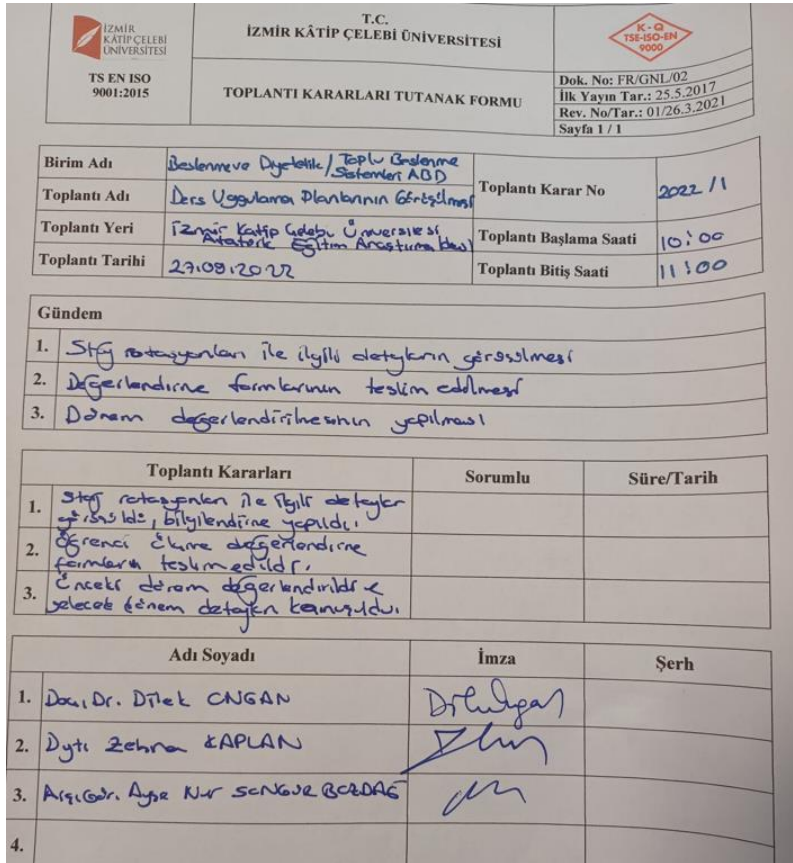 İZMİR
KÂTİP ÇELEBİ
ÜNİVERSİTESİ
TS EN ISO
9001:2015
T.C.
İZMİR KÂTİP ÇELEBİ ÜNİVERSİTESİ
TOPLANTI KARARLARI TUTANAK FORMU
K-Q
TSE-ISO-EN
9000
Dok. No: FR/GNL/02
İlk Yayın Tar.: 25.5.2017
Rev. No/Tar.: 01/26.3.2021
Sayfa 1 / 1
Birim Adı Beslenme ve Diyetetik / Toplu Beslenme
Sistemleri ABD
Toplantı Adı Ders Uygulama Planlarının Görüşülmesi
Toplantı Karar No 2022/1
Toplantı Yeri İzmir Katip Çelebi Üniversitesi
Atatürk Eğitim Araştırma
Toplantı Başlama Saati 10:00
Toplantı Tarihi 27.09.2022
Toplantı Bitiş Saati 11:00
Gündem
1. Staj rotasyonları ile ilgili detayların görüşülmesi
2. Değerlendirme formlarının teslim edilmesi
3. Dönem değerlendirilmesinin yapılması
Toplantı Kararları Sorumlu Süre/Tarih
1. Staj rotasyonları ile ilgili detaylar
görüşüldü, bilgilendirme yapıldı.
2. Öğrenci değerlendirme
formları teslim edildi.
3. Önceki dönem değerlendirildi ve
gelecek dönem detayları konuşuldu.
Adı Soyadı İmza Şerh
1. Doç. Dr. Dilek ONGAN
2. Dyt. Zehra KAPLAN
3. Arş. Gör. Ayşe Nur SONGÜR BOZDAĞ
4.